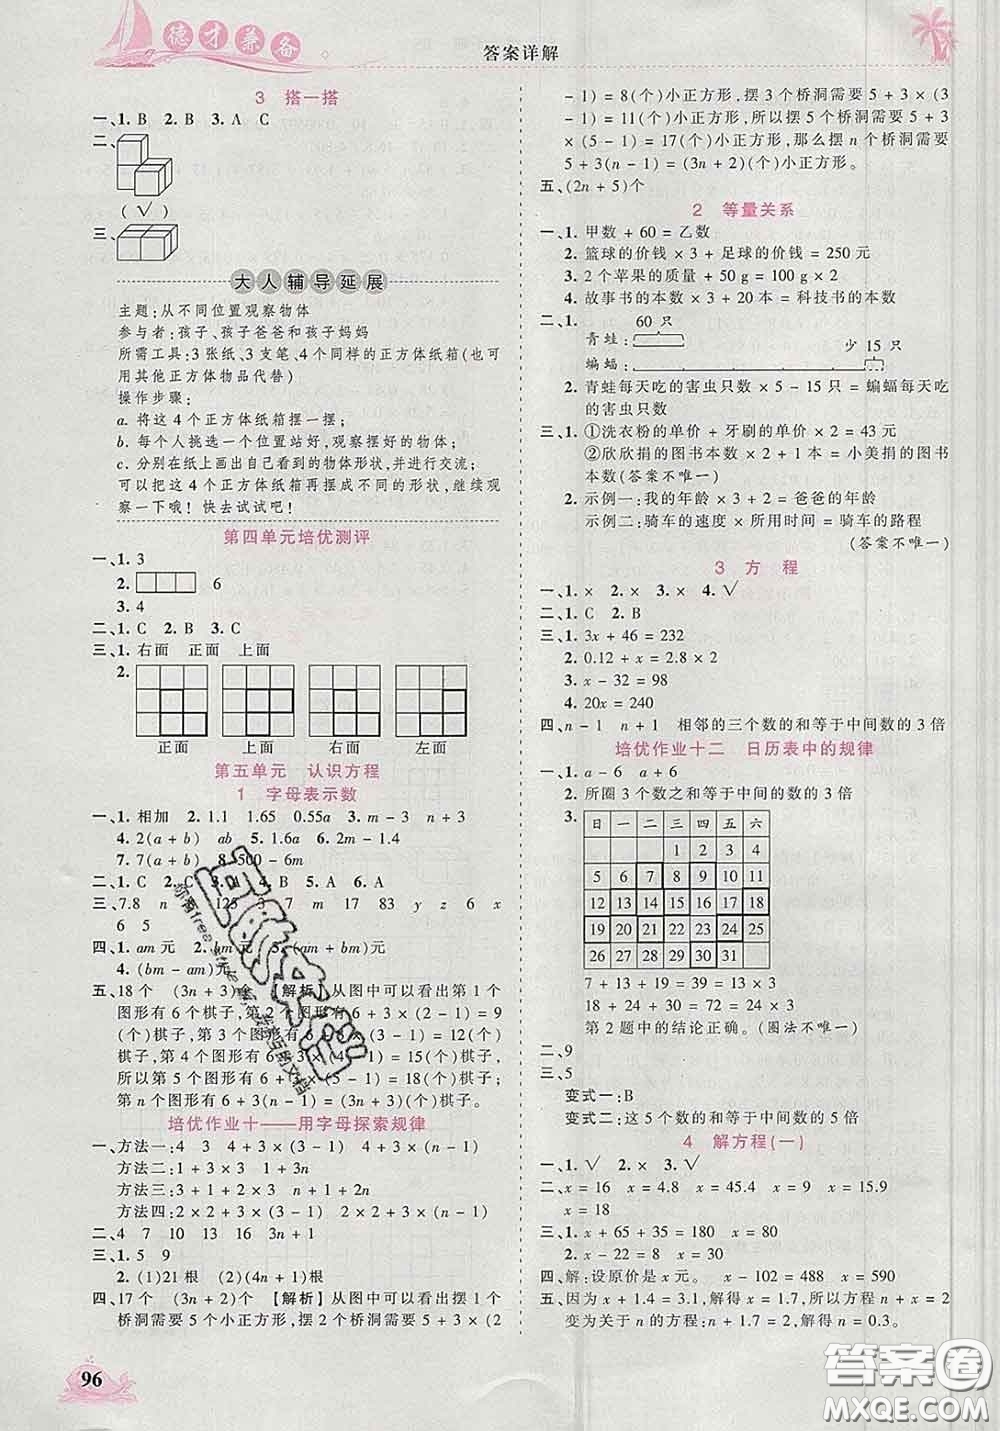 德才兼备
答案详解
3 搭一搭
一、1. B 2. B 3. A C
二、
(√)
三、
大人辅导延展
主题:从不同位置观察物体
参与者:孩子、孩子爸爸和孩子妈妈
所需工具:3张纸、3支笔、4个同样的正方体纸箱(也可
用其他正方体物品代替)
操作步骤:
a. 将这4个正方体纸箱摆一摆;
b. 每个人挑选一个位置站好,观察摆好的物体;
c. 分别在纸上画出自己看到的物体形状,并进行交流;
可以把这4个正方体纸箱再摆成不同的形状,继续观
察一下哦!快去试试吧!
第四单元培优测评
一、1. 3
2. 6
3. 4
二、1. C 2. B 3. C
三、1. 右面 正面 上面
2.
正面 上面 右面 左面
第五单元 认识方程
1 字母表示数
一、1. 相加 2. 1.1 1.65 0.55a 3. m-3 n+3
4. 2(a+b) ab 5. 1.6a 6. 2m-1.4
7. 7(a+b) 8. 500-6m
二、1. C 2. C 3. 4. A 5. A 6. A
三、7.8 n 125 m 17 83 y z 6 x
6 5
四、1. am元 2. bm元 3. (am+bm)元
4. (bm-am)元
五、18个 (3n+3)个 [解析]从图中可以看出第1个
图形有6个棋子,第2个图形有6+3×(2-1)=9
(个)棋子,第3个图形有6+3×(3-1)=12(个)
棋子,第4个图形有6+3×(4-1)=15(个)棋子,
所以第5个图形有6+3×(5-1)=18(个)棋子;
第n个图形有6+3×(n-1)=(3n+3)个棋子。
培优作业十一——用字母探索规律
一、方法一:4 3 4+3×(3-1) 4+3×(n-1)
方法二:1+3×3 1+3n
方法三:
方法四:2×2+3×(3-1) 2×2+3×(n-1)
二、4 7 10 13 16 3n+1
三、1. 5 9
2. (1)21根 (2)(4n+1)根
四、17个 (3n+2)个 [解析]从图中可以看出摆1个
桥洞需要5个小正方形,摆2个桥洞需要5+3×(2
-1)=8(个)小正方形,摆3个桥洞需要5+3×(3
-1)=11(个)小正方形,所以摆5个桥洞需要5+3
×(5-1)=17(个)小正方形,那么摆n个桥洞需要
5+3(n-1)=(3n+2)(个)小正方形。
五、(2n+5)个
2 等量关系
一、1. 甲数+60=乙数
2. 篮球的价钱×3+足球的价钱=250元
3. 2个苹果的质量+50g=100g×2
4. 故事书的本数×3+20本=科技书的本数
二、1.
60只
青蛙:
少15只
蝙蝠:
2. 青蛙每天吃的害虫只数×5-15只=蝙蝠每天吃
的害虫只数
三、1. ①洗衣粉的单价+牙刷的单价×2=43元
②欣欣捐的图书本数×2+1本=小美捐的图书
本数(答案不唯一)
2. 示例一:我的年龄×3+2岁=爸爸的年龄
示例二:骑车的速度×所用时间=骑车的路程
(答案不唯一)
3 方程
一、1. × 2. × 3. × 4. √
二、1. C 2. B
三、1. 3x+46=232
2. 0.12+x=2.8×2
3. x-32=98
4. 20x=240
四、n-1 n+1 相邻的三个数的和等于中间数的3倍
培优作业十二 日历表中的规律
一、1. a-6 a+6
2. 所圈3个数之和等于中间的数的3倍
3.
日 一 二 三 四 五 六
1 2 3 4
5 6 7 8 9 10 11
12 13 14 15 16 17 18
19 20 21 22 23 24 25
26 27 28 29 30 31
7+13+19=39=13×3
18+24+30=72=24×3
第2题中的结论正确。(圈法不唯一)
二、9
三、5
变式一:B
变式二:这5个数的和等于中间数的5倍
4 解方程(一)
一、1. √ 2. × 3. √
二、x=16 x=4.8 x=45.4 x=9 x=15.9
x=18
三、1. x+65+35=180 x=80
2. x-3.8=22 x=25.8
四、解:设原价是x元。 x-102=488 x=590
五、因为x+1.4=3.1,解得x=1.7,所以方程n+x=2
变为关于n的方程:n+1.7=2,解得n=0.3。
96
答案卷
MXQE.COM